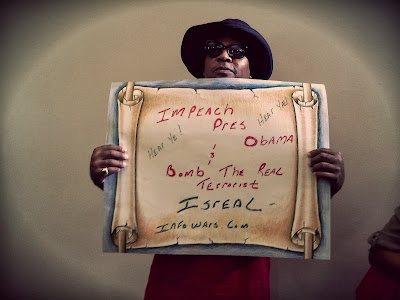 Impeach
Hear Ye!
Pres
Hear Ye!
Obama
&
Bomb The Real
Terrorist
Isreal -
Infowars Com